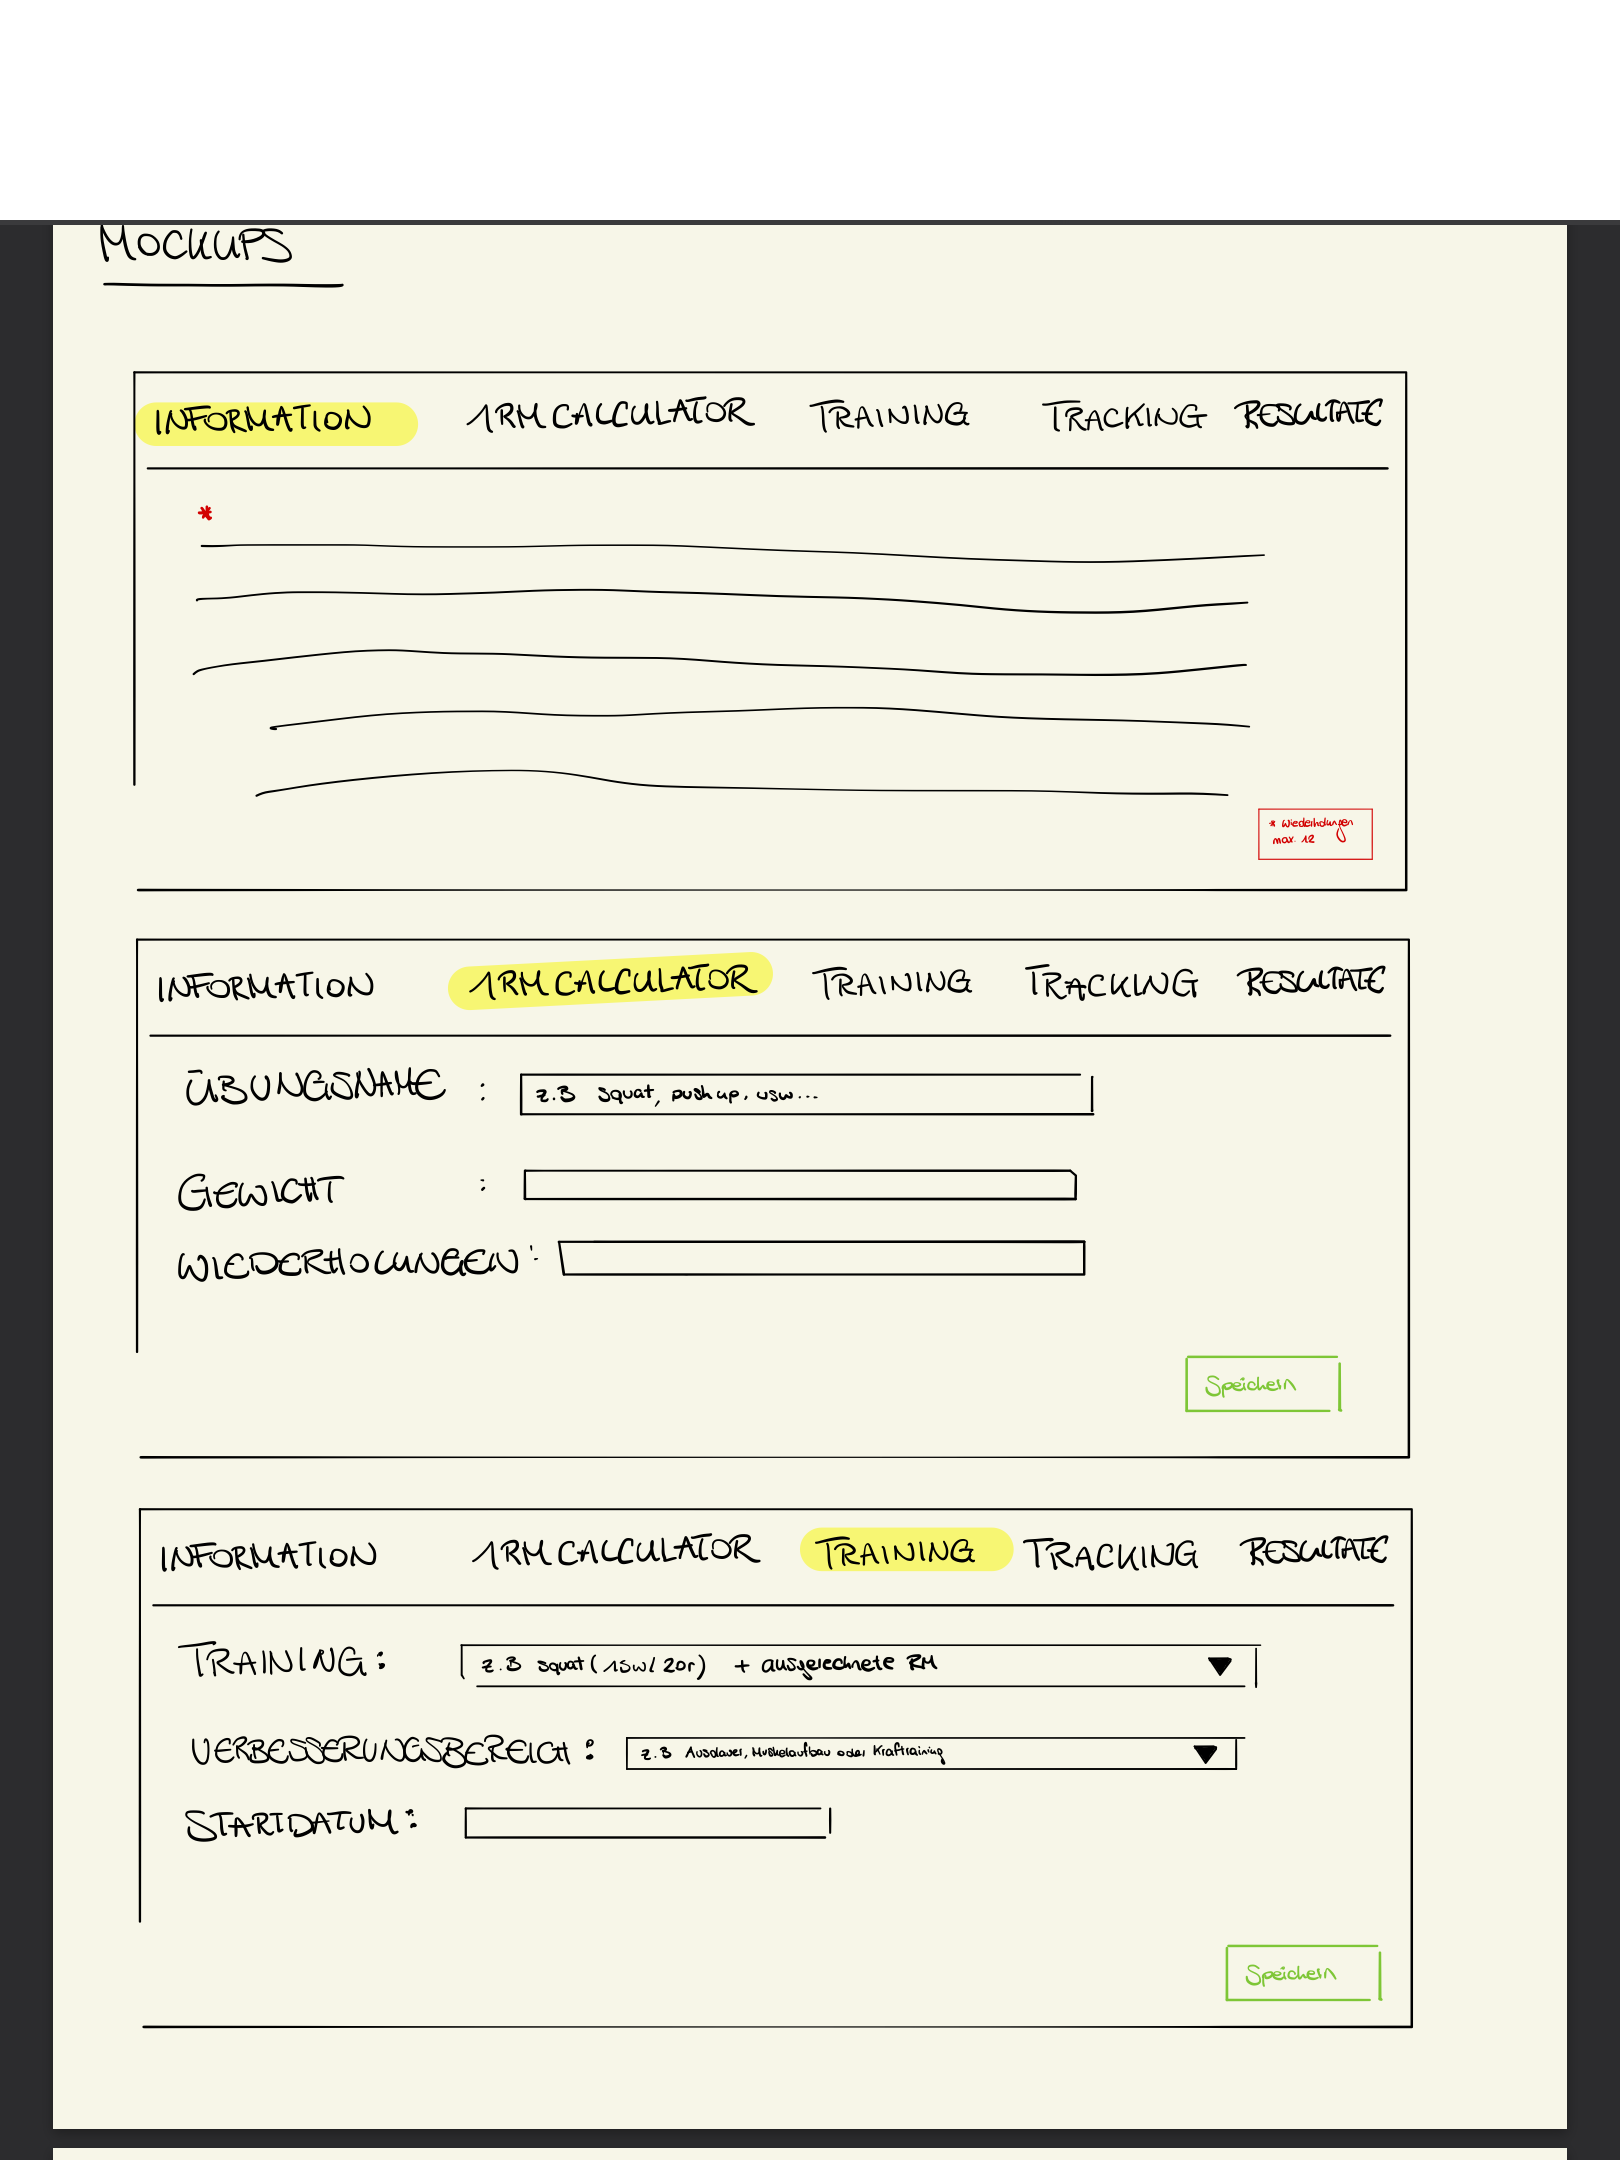 MOCKUPS
INFORMATION 1RM CALCULATOR TRAINING TRACKING RESULTATE
*
* Wiederholungen
max. 12
INFORMATION 1RM CALCULATOR TRAINING TRACKING RESULTATE
ÜBUNGSNAME : z.B squat, push up, usw...
GEWICHT :
WIEDERHOLUNGEN :
Speichern
INFORMATION 1RM CALCULATOR TRAINING TRACKING RESULTATE
TRAINING: z.B squat (15w/20r) + ausgerechnete RM
VERBESSERUNGSBEREICH: z.B Ausdauer, Muskelaufbau oder Kraftraining
STARTDATUM:
Speichern